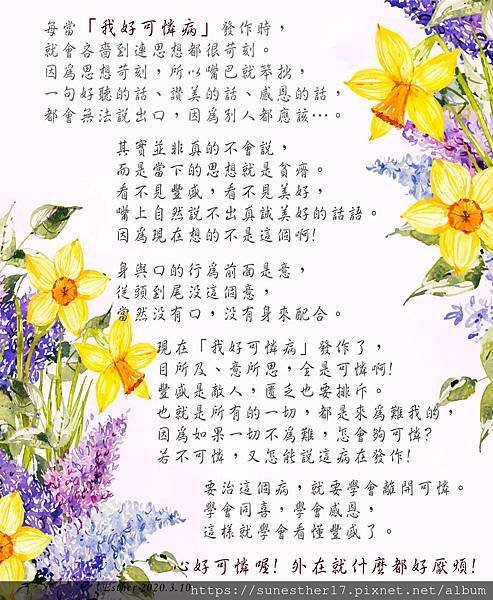 每當「我好可憐病」發作時，
就會吝嗇到連思想都很苛刻。
因為思想苛刻，所以嘴巴就笨拙，
一句好聽的話、讚美的話、感恩的話，
都會無法說出口，因為別人都應該…。
其實並非真的不會說，
而是當下的思想就是貧瘠。
看不見豐盛，看不見美好，
嘴上自然說不出真誠美好的話語。
因為現在想的不是這個啊!
身與口的行為前面是意，
從頭到尾沒這個意，
當然沒有口，沒有身來配合。
現在「我好可憐病」發作了，
目所及、意所思，全是可憐啊!
豐盛是敵人，匱乏也要排斥。
也就是所有的一切，都是來為難我的，
因為如果一切不為難，怎會夠可憐?
若不可憐，又怎能說這病在發作!
要治這個病，就要學會離開可憐。
學會同喜，學會感恩，
這樣就學會看懂豐盛了。
心好可憐喔! 外在就什麼都好厭煩!
Esther 2020.3.10
https://sunesther17.pixnet.net/album